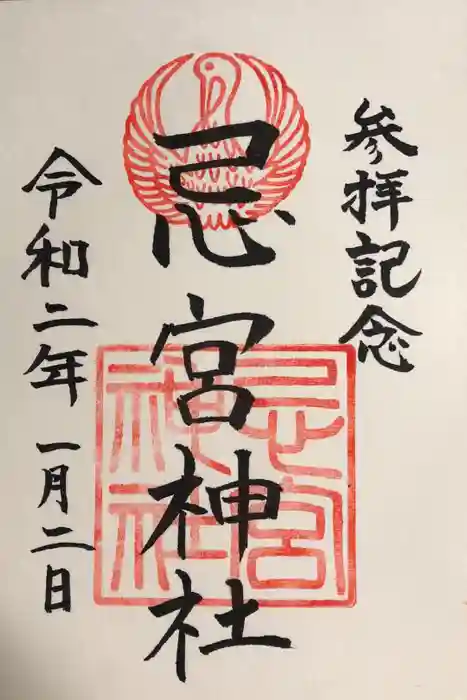 参拝記念
忌宮神社
令和二年一月二日
忌宮
神社